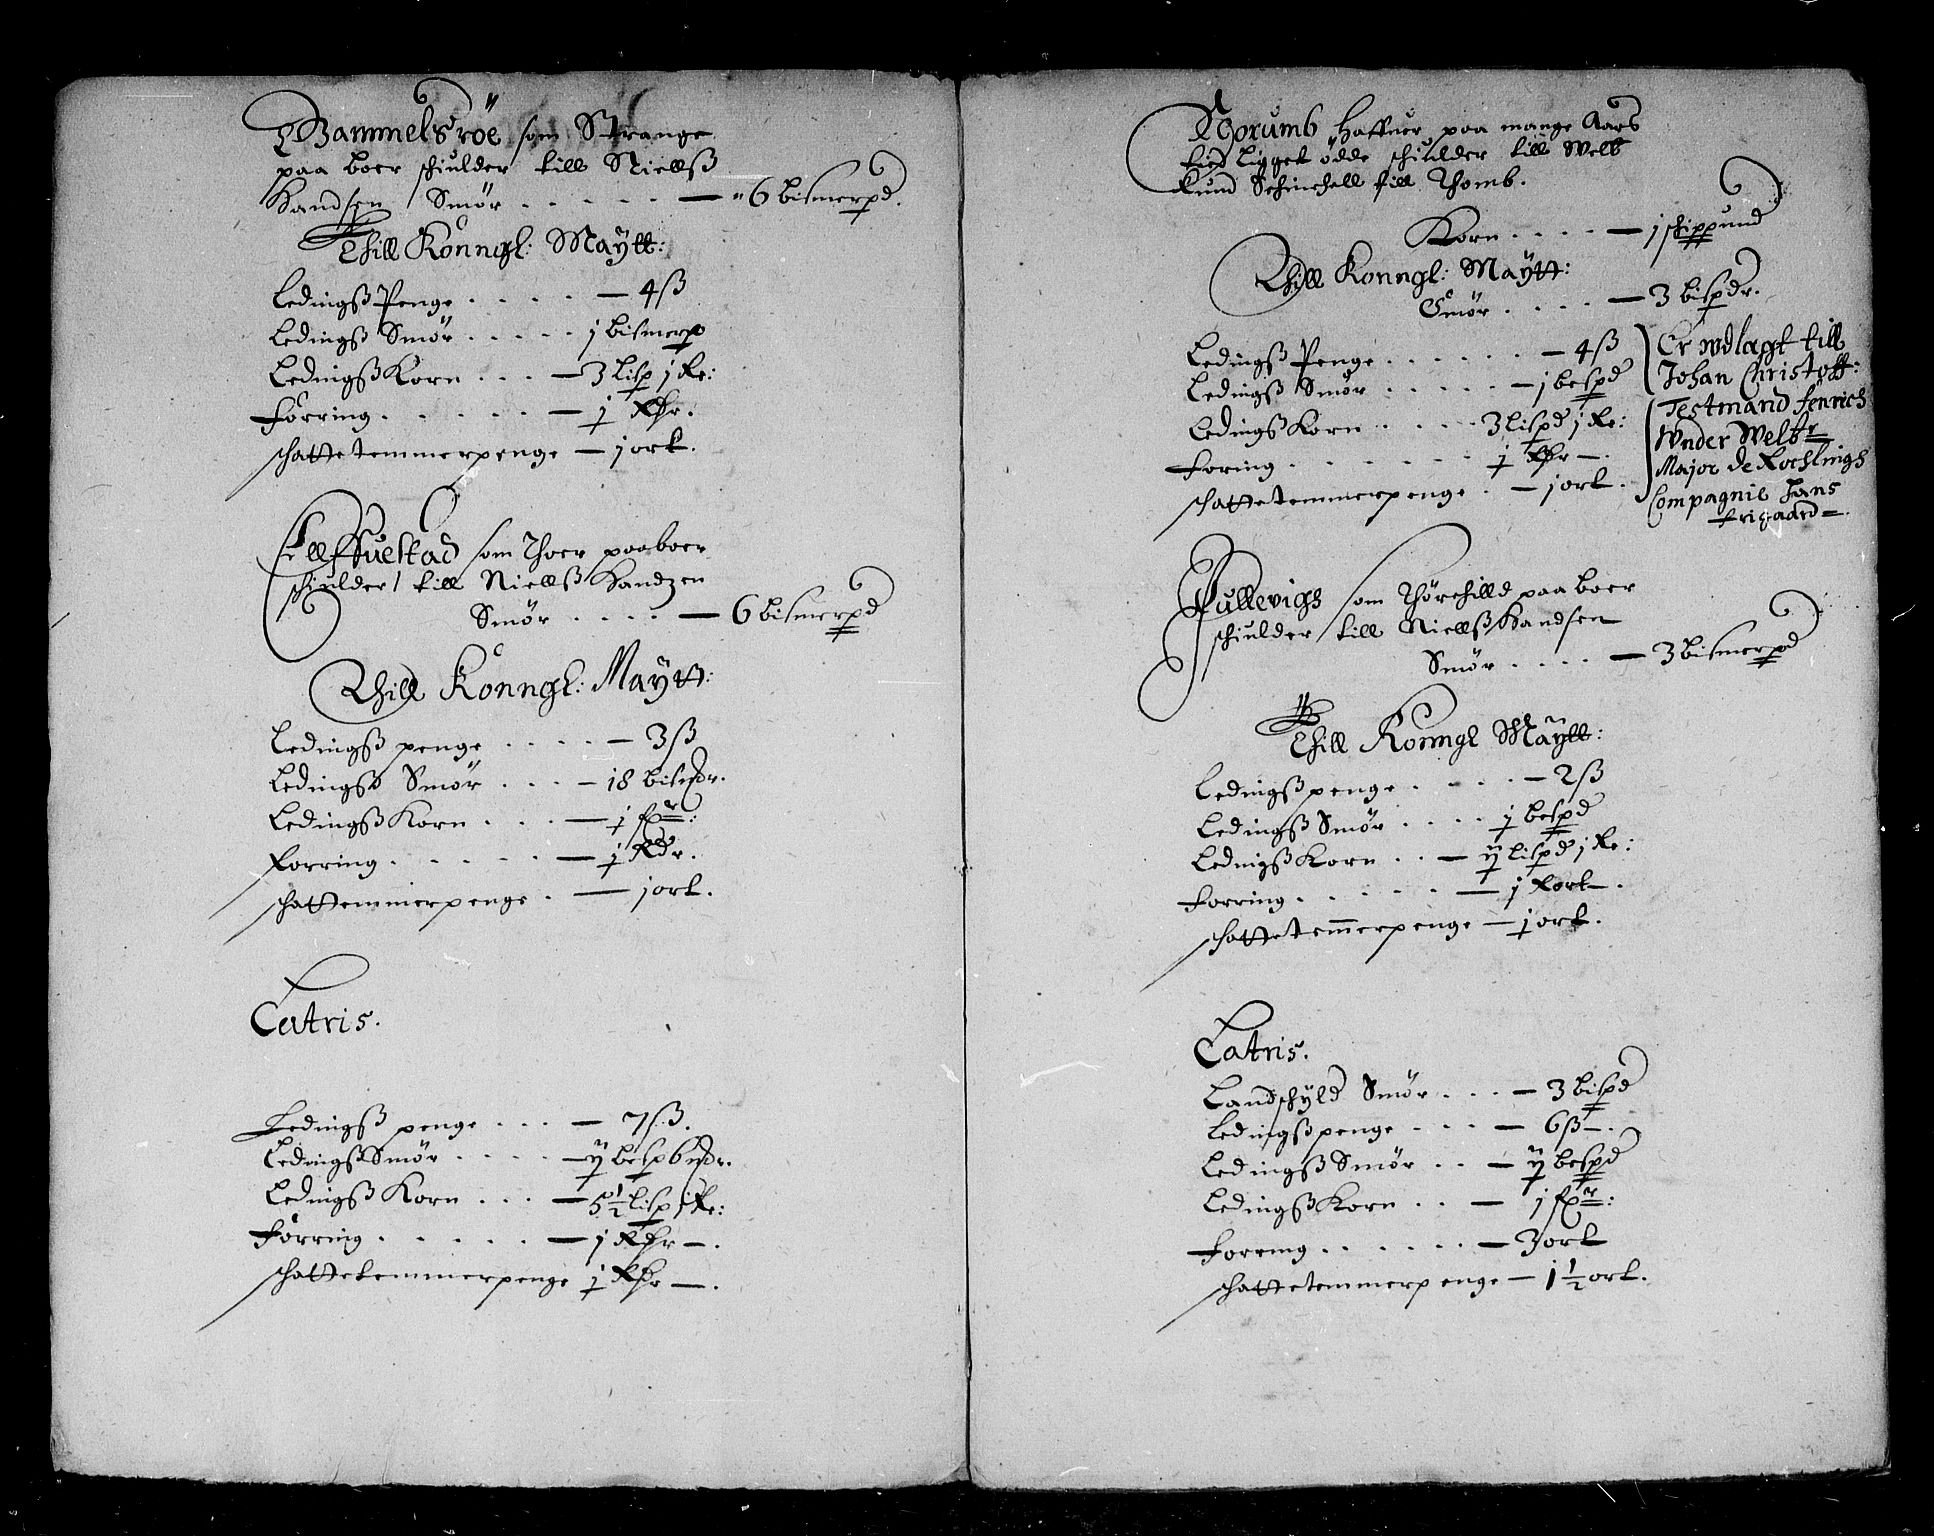 Gammelsröe som Strange
paa boer schiulder till Nielß
Handsen Smör . . . . . — 6 bismerpd.
Thill Konngl: Maÿtt:
Ledingß Penge . . . . — 4 ß
Ledingß Smör . . . . . 1 bismerp
Ledingß Korn . . . — 3 Lisp 1 Re:
Forring . . . . . . — 1 Rdr.
schattetemmerpenge — 1 ort.
som Thoer paaboer
schiulder till Nielß Handzen
Smör . . . . — 6 bismerpd
Thill Konngl: Maÿtt:
Ledingß penge . . . . — 3 ß
Ledingß Smör . . . — 18
Ledingß Korn . . . — 1
Forring . . . . . — 1 Rdr.
schattemmerpenge . — 1 ort.
Latris.
Ledingß penge . . . — 7 ß.
Ledingß Smör . . . . — ij besp 6
Ledingß Korn . . . — 5 1/2 lisp 1 Re:
Forring . . . . . — 1 Rdr —.
schattetemmerpenge 1 Rdr —.
Norumb Haffuer paa mange Aars
tied ligget ödde schiulder till Welb
Knud Schinchell till Thomb.
Korn . . . . — 1 skippund
Thill Konngl: Maÿtt:
Smör . . . . — 3 bispdr.
Ledingß Penge . . . . . . — 4 ß
Ledingß Smör . . . . . — 1 bespd
Ledingß Korn . . . . 3 Lispd 1 Re:
Foring . . . . . . . 1 Rdr —.
schattetemmerpenge . — 1 ort.
Er vdlagt till
Johan Christoff:
Testmand fenrich
Wnder Welbr
Major de Rochlingh
Compagnie Hans
frigaard —.
Pullevigh som Thörchilld paa boer
schiulder till Nielß Handsen
Smör . . . . — 3 bismerpd
Thill Konngl Maÿtt:
Ledingß penge . . . . — 2 ß
Ledingß Smör . . . . 1 bespd
Ledingß Korn . . — ij lispd 1 Re:
Forring . . . . . — 1 Rort —.
schattetemerpenge — 1 ort.
Latris.
Landschÿld Smör . . . — 3 bispd
Ledingß penge . . . — 6 ß —.
Ledingß Smör . . — ij bespd
Ledingß Korn . . — 1
Forring . . . . . . — 3 ort
schattetemmerpenge — 1 1/2 ort.